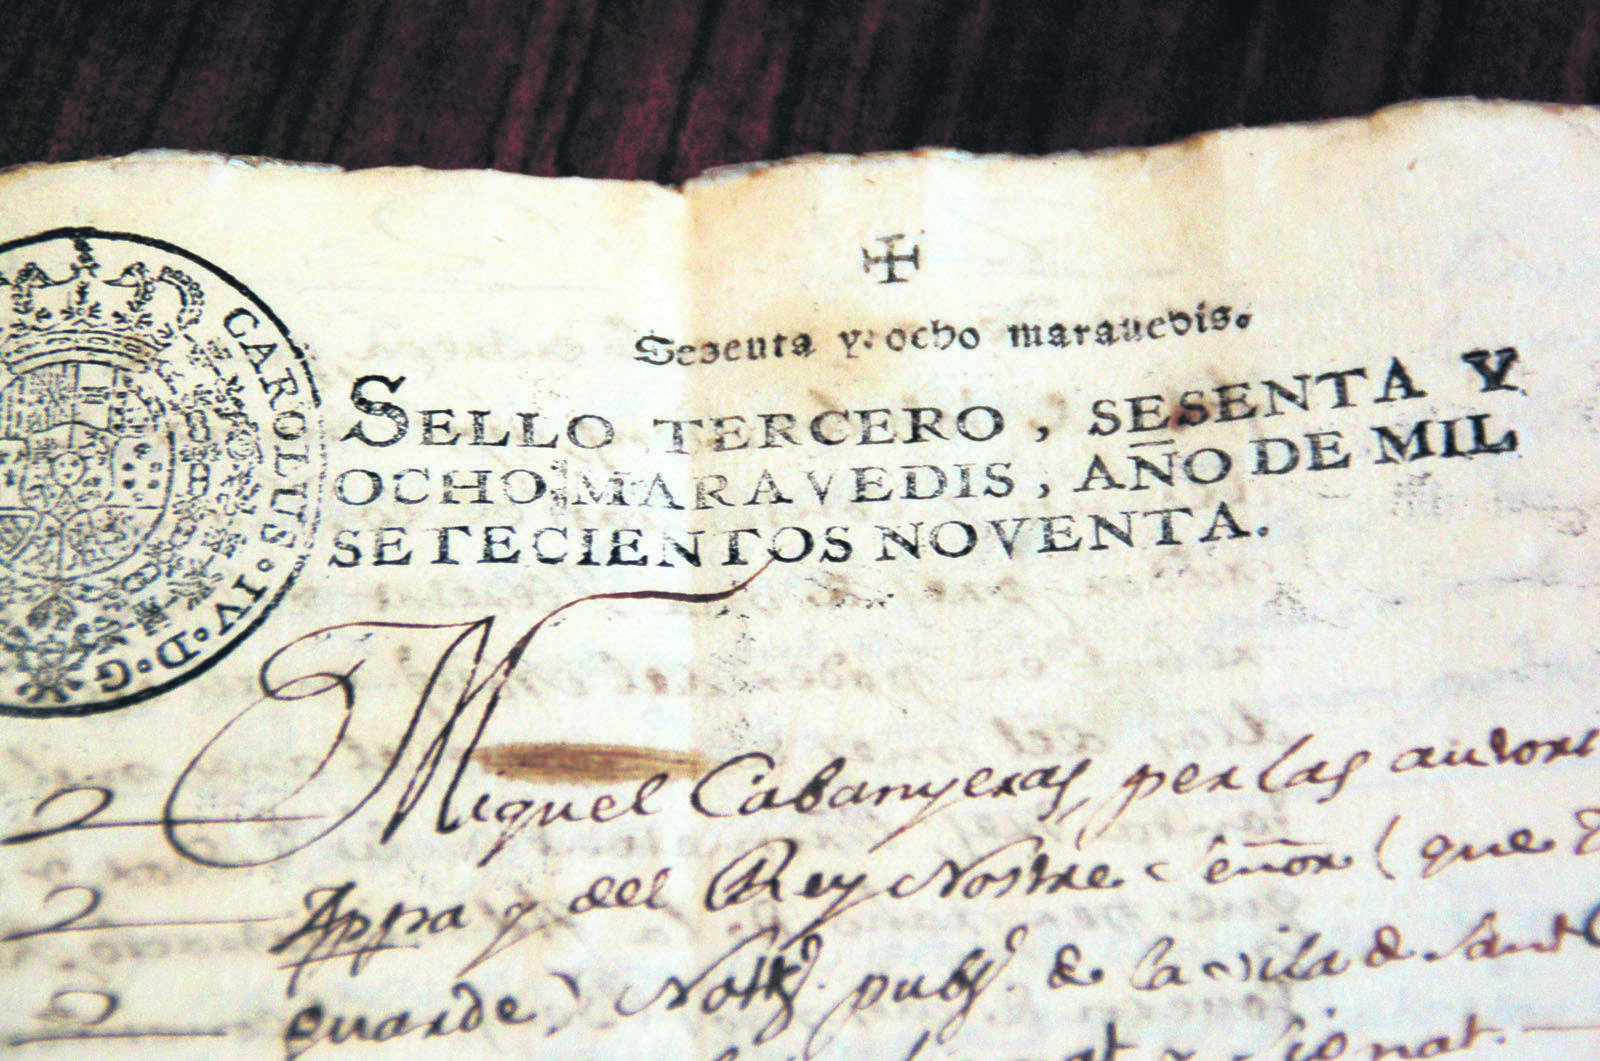 CAROLUS · IV · D · G
Sesenta y ocho maravedis.
SELLO TERCERO, SESENTA Y
OCHO MARAVEDIS, AÑO DE MIL
SETECIENTOS NOVENTA.
Miquel Cabanyeras, per las autors
Appa y del Rey Nostre Señor (que D
guarde) Notþ. pubþ. de la vila de Sant